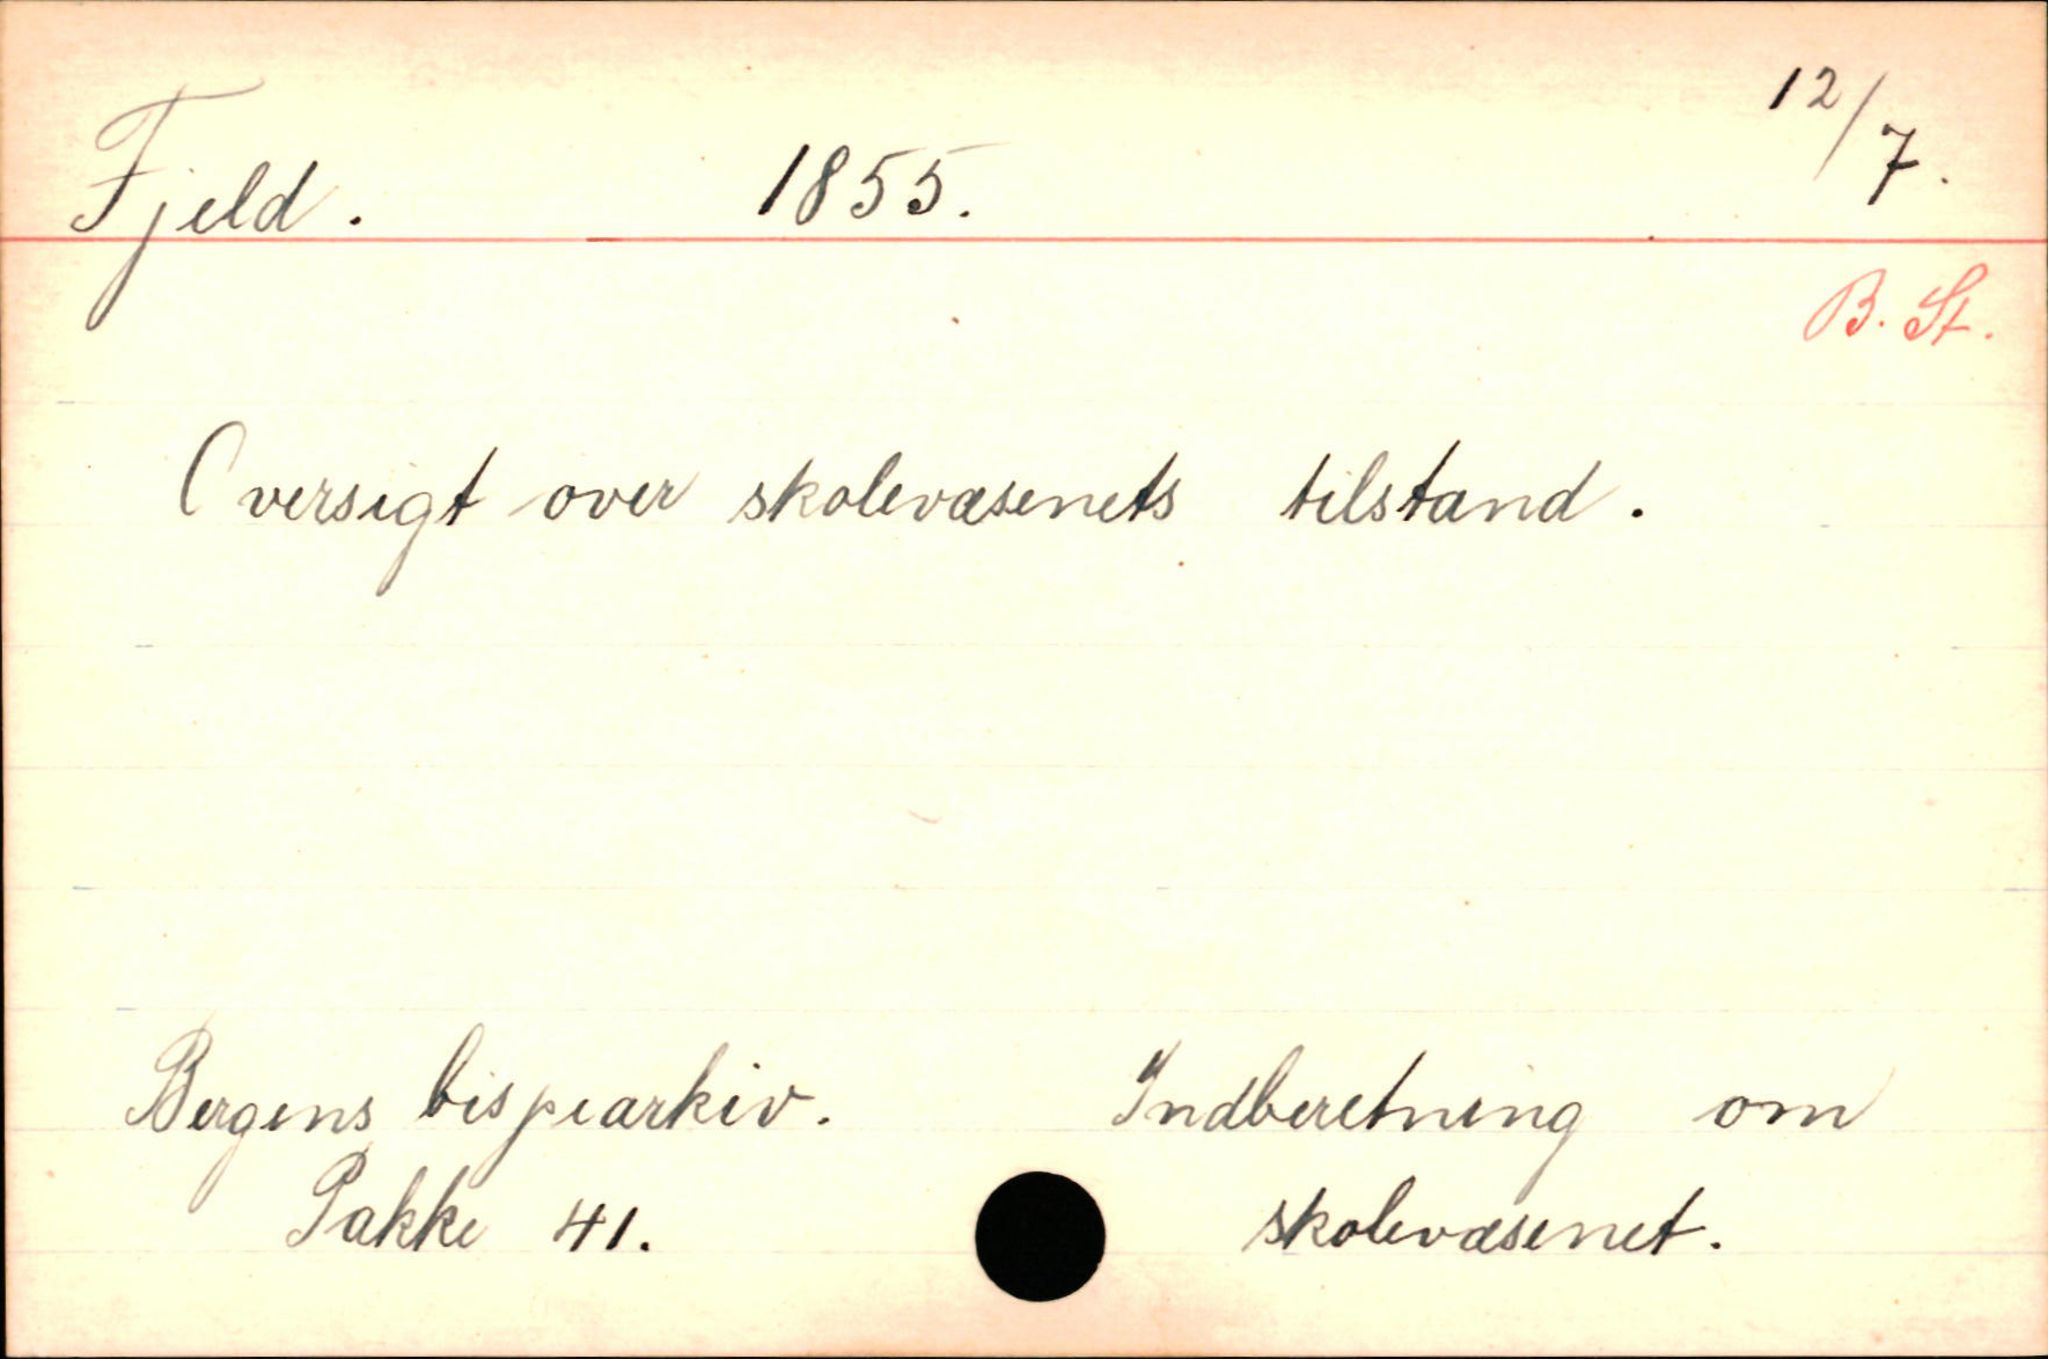 Fjeld. 1855. 12/7.
B. St.
Oversigt over skolevæsenets tilstand.
Bergens bispearkiv. Indberetning om
Pakke 41. skolevæsenet.